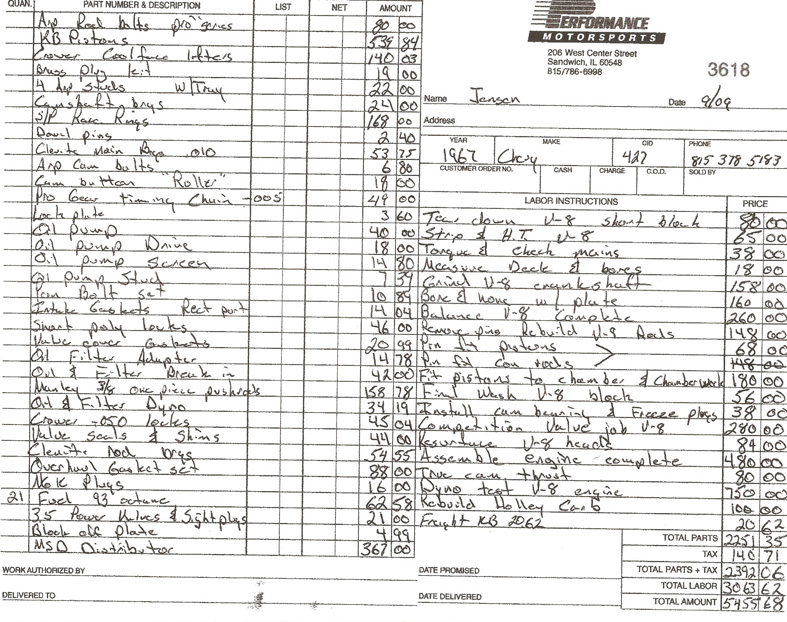 QUAN. PART NUMBER & DESCRIPTION LIST NET AMOUNT
Arp Rod bolts pro series 80 00
KB Pistons 539 84
Crower Coolface lifters 140 03
Brass plug kit 19 00
4 Arp Studs w/Tray 22 00
Camshaft brgs 24 00
S/P Race Rings 168 00
Dowel pins 2 40
Clevite Main Brgs .010 53 75
Arp Cam bolts 6 80
Cam button "Roller" 18 00
Pro Gear timing Chain -005 49 00
Lock plate 3 60
Oil pump 40 00
Oil pump Drive 18 00
Oil pump screen 14 80
Oil pump Stud 7 39
Bolt Set 10 89
Intake Gaskets Rect port 14 04
Short poly locks 46 00
Valve cover Gaskets 20 99
Oil Filter Adapter 14 78
Oil & Filter Break in 42 00
Manley 3/8 one piece pushrods 158 78
Oil & Filter Dyno 34 19
Crower -050 locks 45 04
Valve Seals & Shims 44 00
Clevite Rod brgs 54 55
Overhaul Gasket set 88 00
NGK Plugs 16 00
21 Fuel 93 octane 62 58
35 Power Valves & Sight plugs 21 00
Block off Plate 4 99
MSD Distributor 367 00
WORK AUTHORIZED BY
DELIVERED TO
PERFORMANCE
MOTORSPORTS
206 West Center Street
Sandwich, IL 60548
815/786-6998
3618
Name Jensen Date 9/09
Address
YEAR MAKE CID PHONE
1967 Chevy 427 815 378 5183
CUSTOMER ORDER NO. CASH CHARGE C.O.D. SOLD BY
LABOR INSTRUCTIONS PRICE
Tear down V-8 short block 80 00
Strip & H.T. V-8 65 00
Torque & check mains 38 00
Measure Deck & bores 18 00
Grind V-8 crankshaft 158 00
Bore & hone w/ plate 160 00
Balance V-8 Complete 260 00
Remove pins Rebuild V-8 Rods 148 00
Pin fit pistons 68 00
Pin fit con rods 148 00
Fit pistons to chamber & Chamber Work 180 00
Final Wash V-8 block 56 00
Install cam bearing & Freeze plugs 38 00
Competition Valve job V-8 280 00
Resurface V-8 heads 84 00
Assemble engine complete 480 00
True cam thrust 80 00
Dyno test V-8 engine 750 00
Rebuild Holley Carb 100 00
Freight KB 20.62 20 62
TOTAL PARTS 2251 35
TAX 140 71
TOTAL PARTS + TAX 2392 06
TOTAL LABOR 3063 62
TOTAL AMOUNT 5455 68
DATE PROMISED
DATE DELIVERED